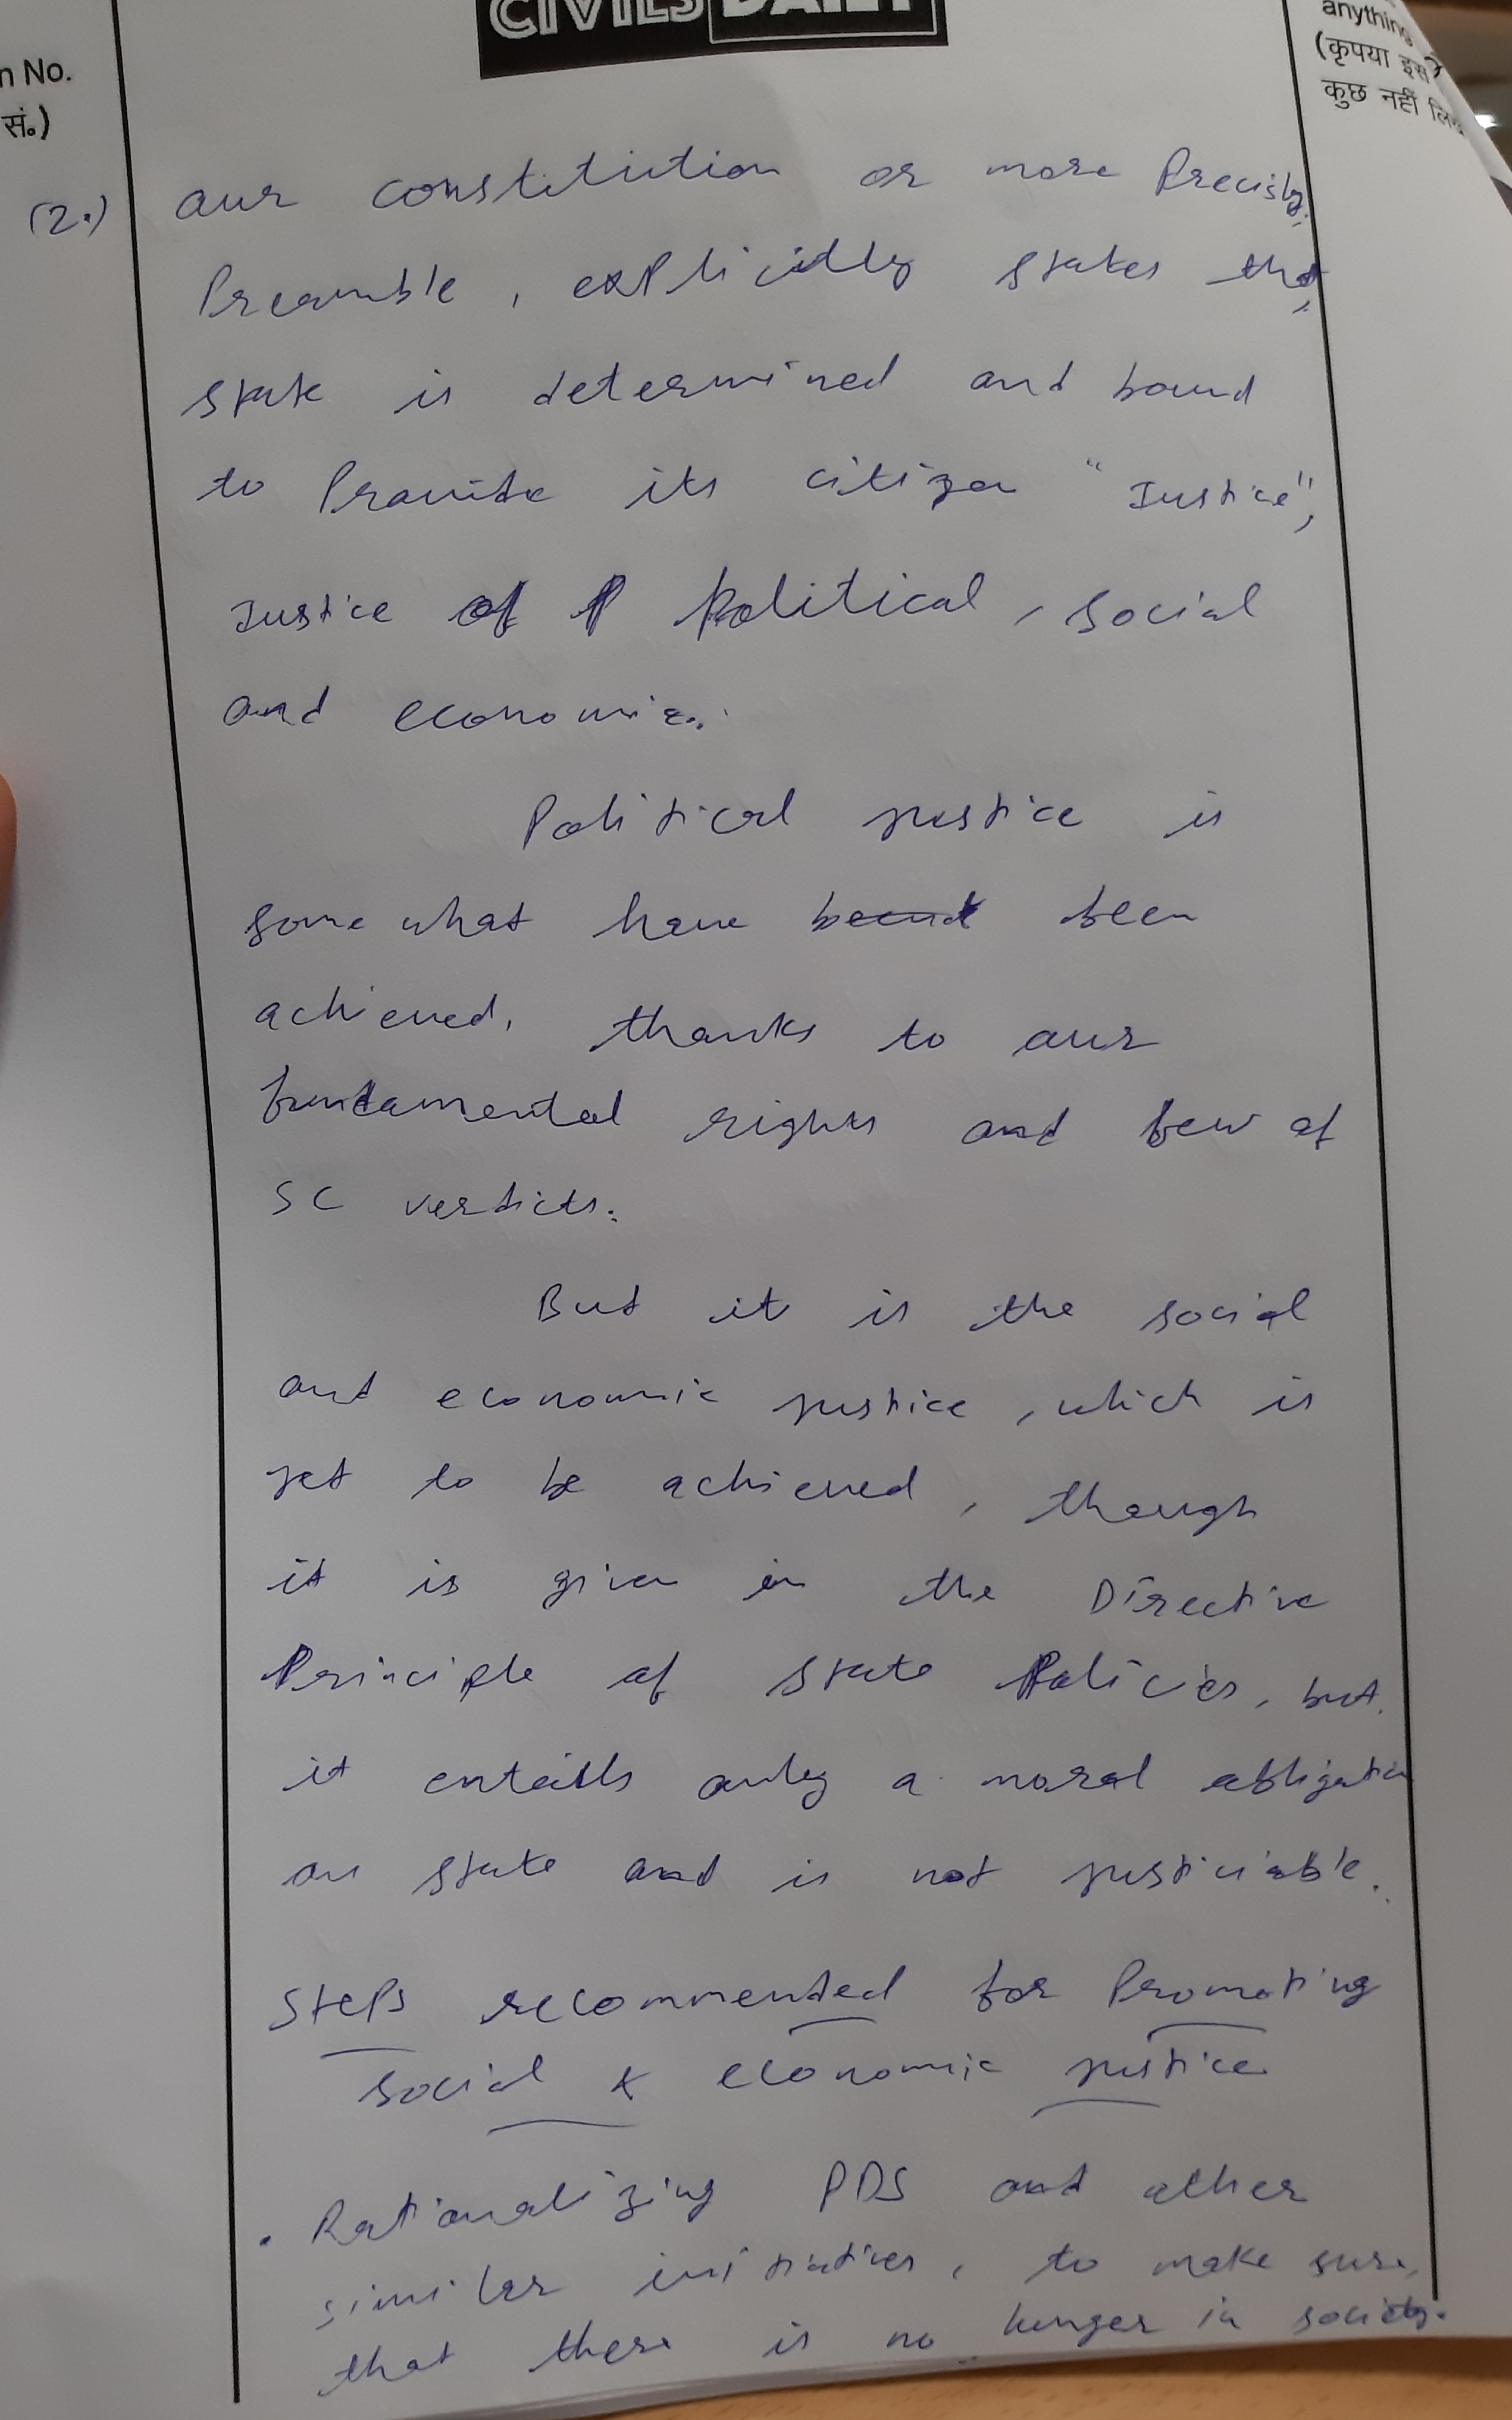 CIVILS DAILY
n No.
सं.)
anything
(कृपया इस
कुछ नहीं लिख
(2.)
our constitution or more Precisly,
Preamble, explicitly states that,
state is determined and bound
to Provide its citizen "Justice",
Justice of P political, social
and economic.
Political justice is
some what have been
achieved, thanks to our
fundamental rights and few of
SC verdicts.
But it is the social
and economic justice, which is
yet to be achieved, though
it is given in the Directive
Principle of State Policies, but
it entails only a moral obligation
on state and is not justiciable.
Steps recommended for Promoting
social & economic justice
• Rationalizing PDS and other
similar initiatives, to make sure,
that there is no hunger in society.